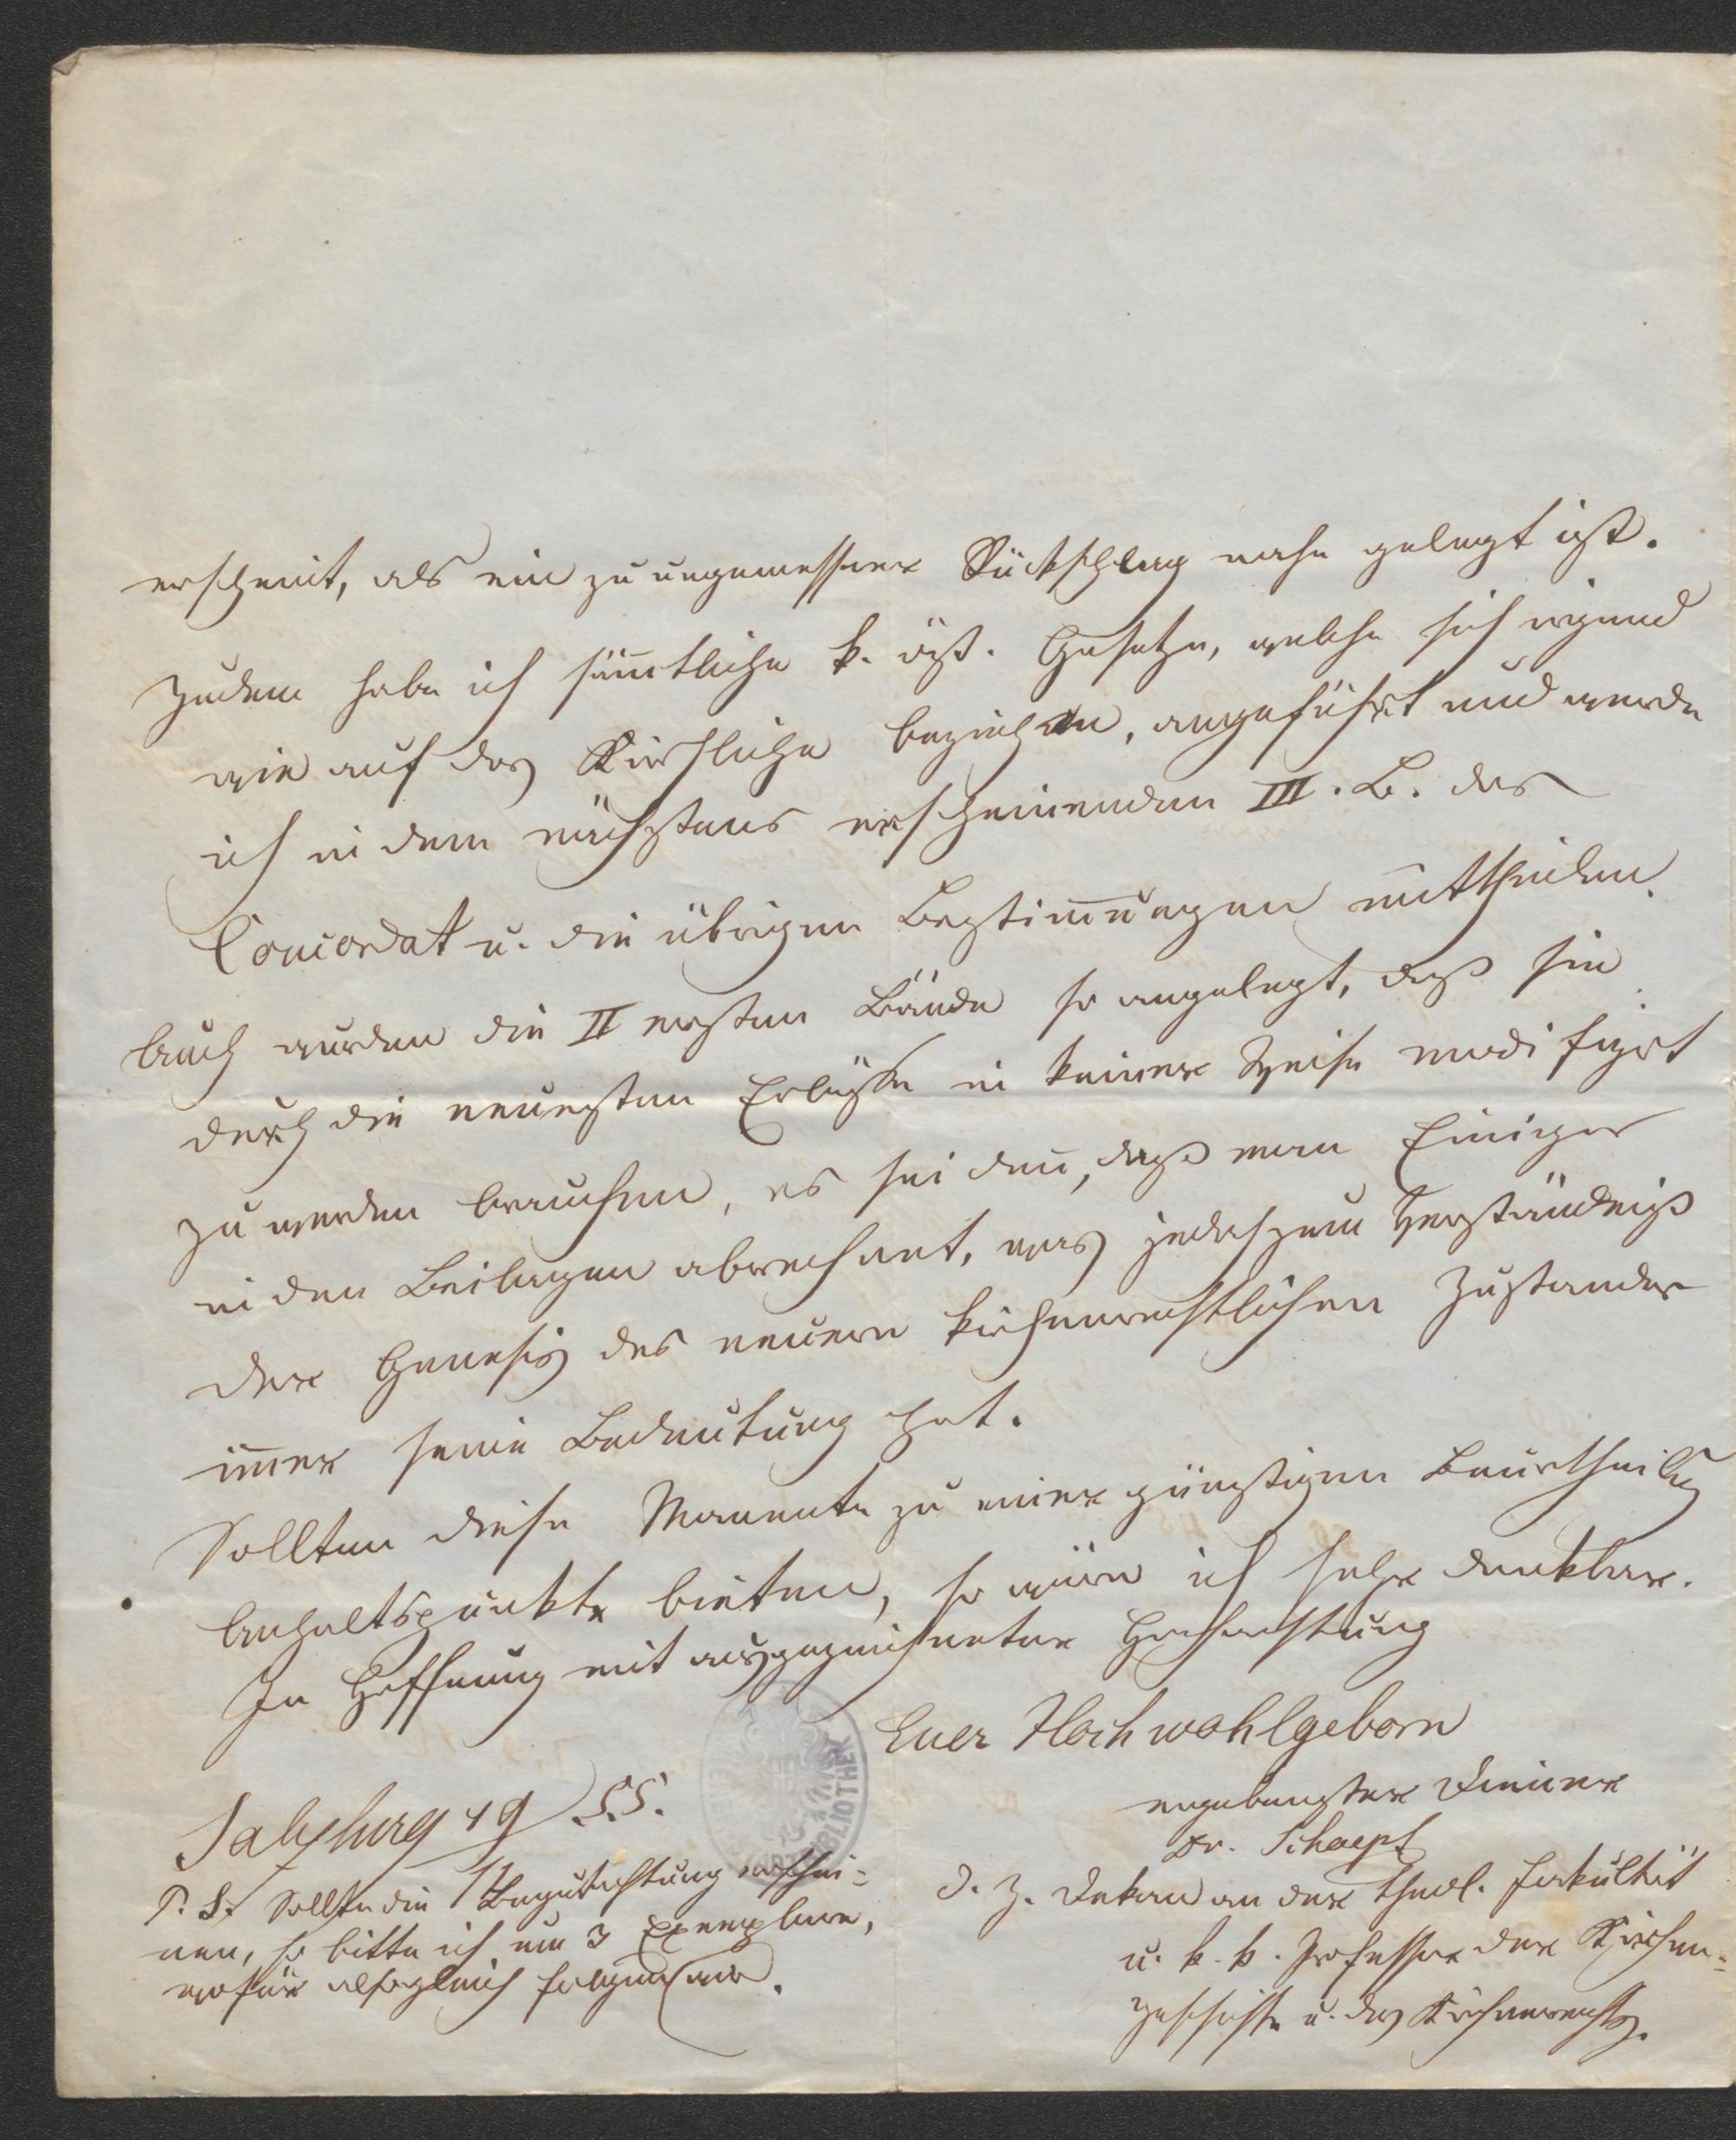 erscheint, als ein zu ungemessener Rückschlag nahe gelegt ist.
Zudem habe ich sämtliche k. öst. Gesetze, welche sich irgend
wie auf das Kirchliche beziehen, angeführt und werde
ich in dem nächstens erscheinenden III. B. das
Concordat u. die übrigen Bestimungen mittheilen.
Auch wurden die II ersten Bände so angelegt, daß sie
durch die neuesten Erläße in keiner Weise modifizirt
zu werden brauchen, es sei den, daß man Einiges
in den Beilagen abrechnet, was jedoch zum Verständniß
der Genesis des neuern kirchenrechtlichen Zustandes
imer seine Bedeutung hat.
Sollten diese Momente zu einer günstigen Beurtheilg
Anhaltspunkte bieten, so wäre ich sehr dankbar.
In Hoffnung mit ausgezeichneter Hochachtung
Euer Hochwohlgeborn
ergebenster Diener
Dr. Schoepf
d. Z. Dekan an der theol. Fakultät
u. k. k. Professor der Kirchen-
geschichte u. des Kirchenrechts.
Salzburg 19 55.
P. S. Sollte die Begutachtung erschei-
nen, so bitte ich um 3 Exemplare,
wofür alsogleich
BIBLIOTHEK